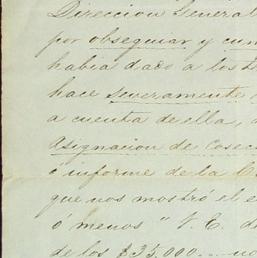 Direccion General
por obsequiar y cum
habia dado a los
hace severamente
a cuenta de ella, 
Asignacion de Cosec
ó informe de la C
que nos mostró el e
ó menos " V. E. d
de los $35,000.... no